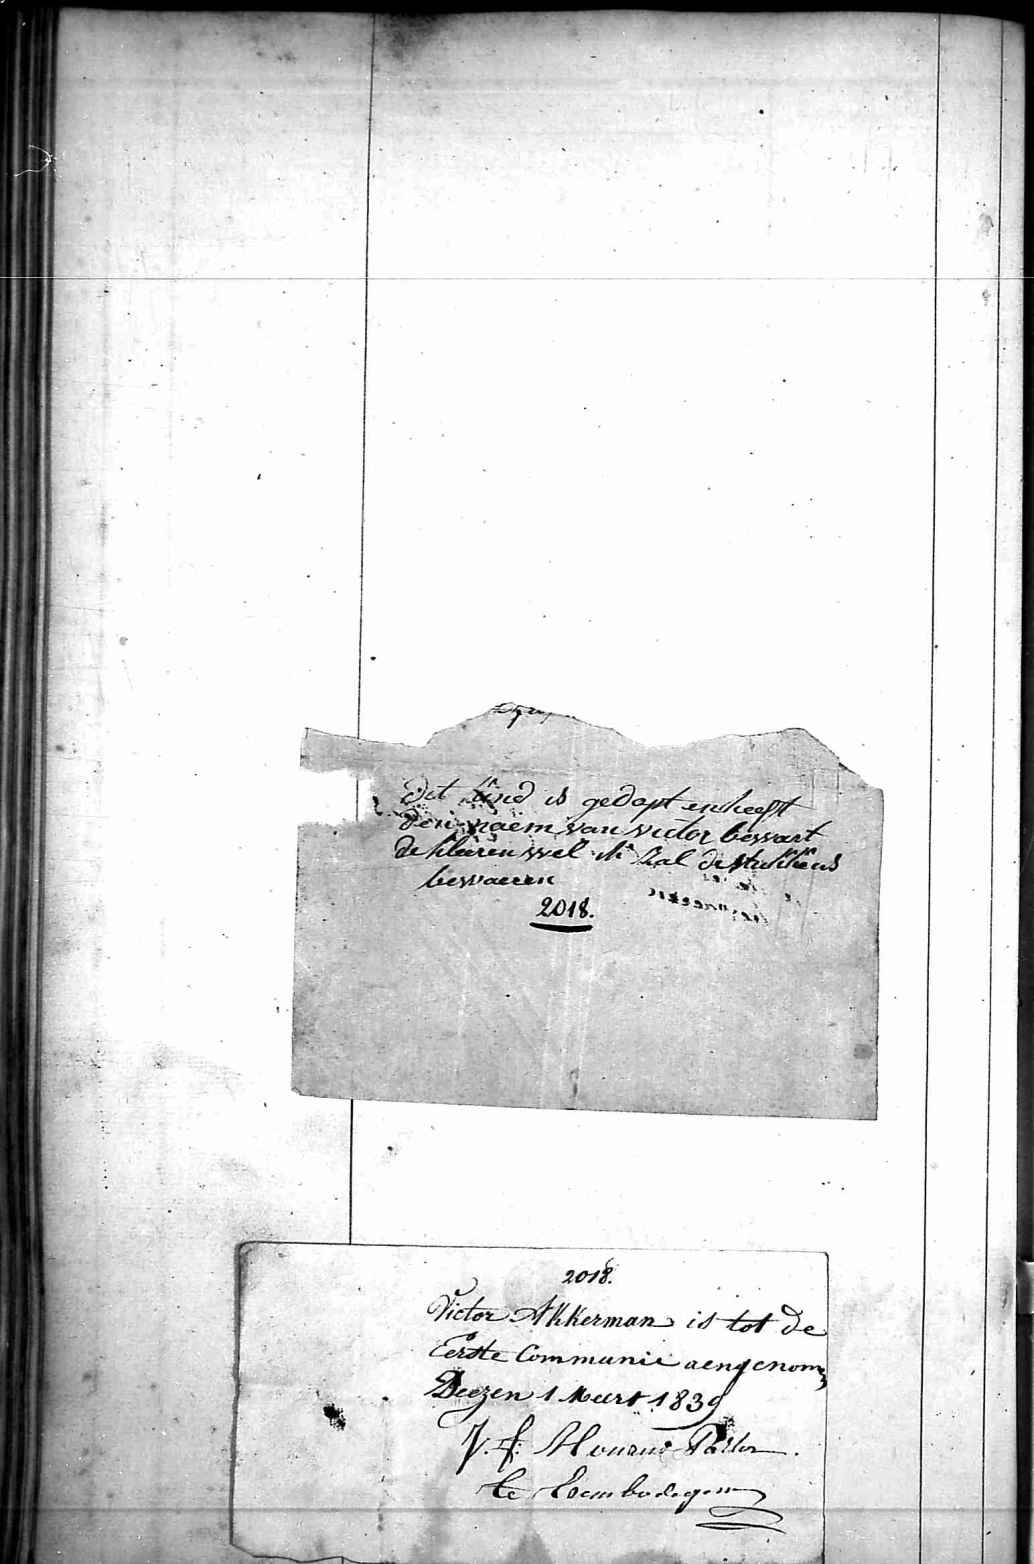 Dit kind is gedopt en heeft
den naem van victor bewaert
de kleeren wel ik sal de stukkens
bewaeren
2018.
2018.
Victor Akkerman is tot de
Eerste Communie aengenom
Deezen 1 Meert 1839
J. f. Pastor
te Erembodegem